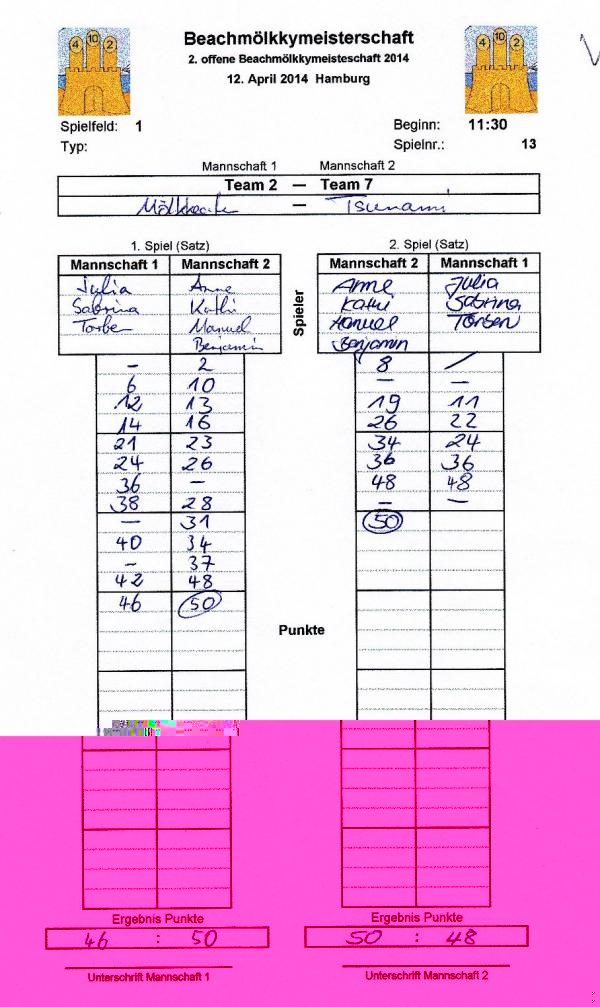 4 10 2
4 10 2
Beachmölkkymeisterschaft
2. offene Beachmölkkymeisteschaft 2014
12. April 2014 Hamburg
Spielfeld: 1 Beginn: 11:30
Typ: Spielnr.: 13
Mannschaft 1 Mannschaft 2
Team 2 — Team 7
— Tsunami
1. Spiel (Satz) 2. Spiel (Satz)
Mannschaft 1 Mannschaft 2 Mannschaft 2 Mannschaft 1
Julia Anne Anne Julia
Sabrina Kathi Kathi Sabrina
Torben Manuel Manuel Torben
Benjamin Benjamin
Spieler
– 2 8 /
6 10 – –
12 13 19 11
14 16 26 22
21 23 34 24
24 26 36 36
36 – 48 48
38 28 – –
– 31 50
40 34
– 37
42 48
46 50
Punkte
Ergebnis Punkte Ergebnis Punkte
46 : 50 50 : 48
Unterschrift Mannschaft 1 Unterschrift Mannschaft 2